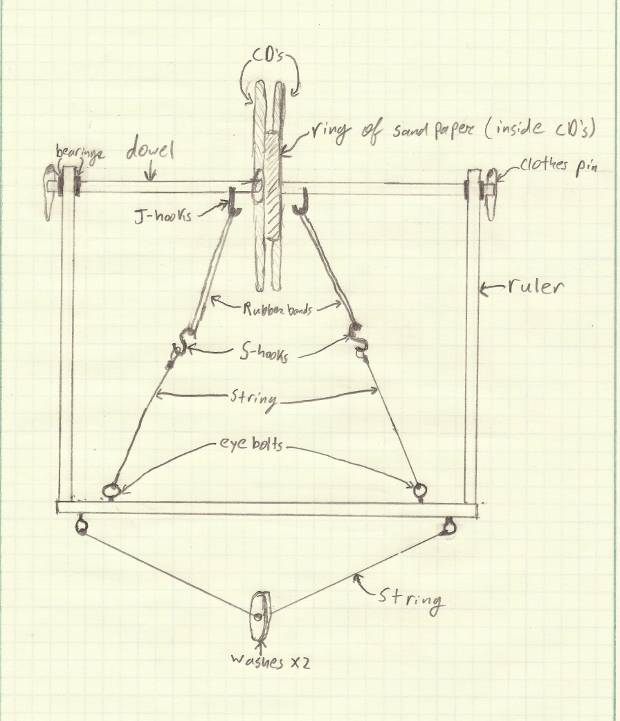 CD's
ring of sand paper (inside CD's)
bearings
dowel
clothes pin
J-hooks
ruler
Rubber bands
S-hooks
String
eye bolts
String
washes x2